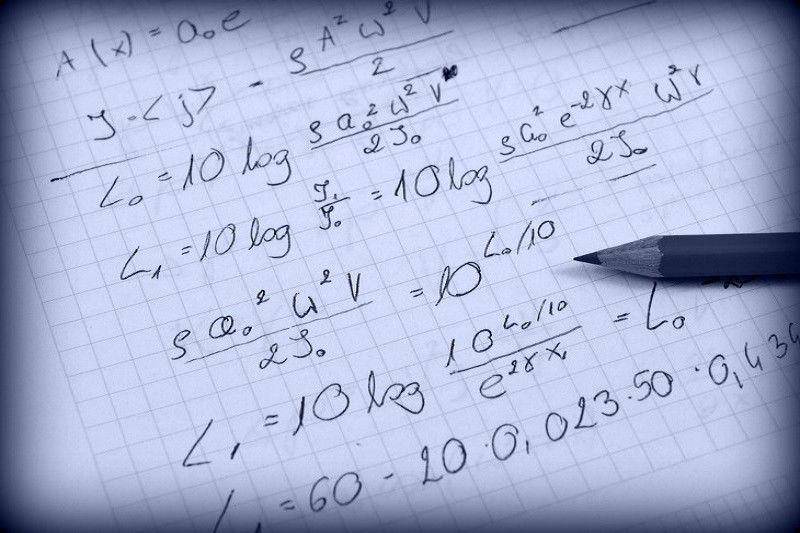 A(x) = a₀e
J = <j> = ρA²ω²V/2
L₀ = 10 log ρa₀²ω²V/2J₀
L₁ = 10 log J₁/J₀ = 10 log ρa₀²e⁻²ᵞˣω²V/2J₀
ρa₀²ω²V/2J₀ = 10^L₀/10
L₁ = 10 log 10^L₀/10/e^2γx₁ = L₀
L₁ = 60 - 20·0,023·50·0,434